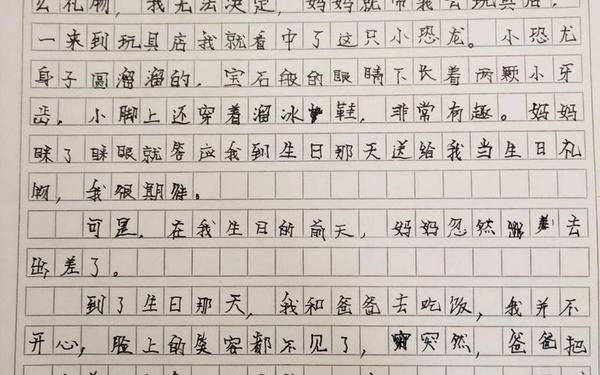 么礼物，我无法决定，妈妈就带我去玩具店。
一来到玩具店我就看中了这只小恐龙。小恐龙
身子圆溜溜的，宝石般的眼睛下长着两颗小牙
齿。小脚上还穿着溜冰鞋，非常有趣。妈妈
眯了眯眼就答应我到生日那天送给我当生日礼
物，我很期待。
可是，在我生日的前天，妈妈忽然去
出差了。
到了生日那天，我和爸爸去吃饭，我并不
开心，脸上的笑容都不见了，突然，爸爸把